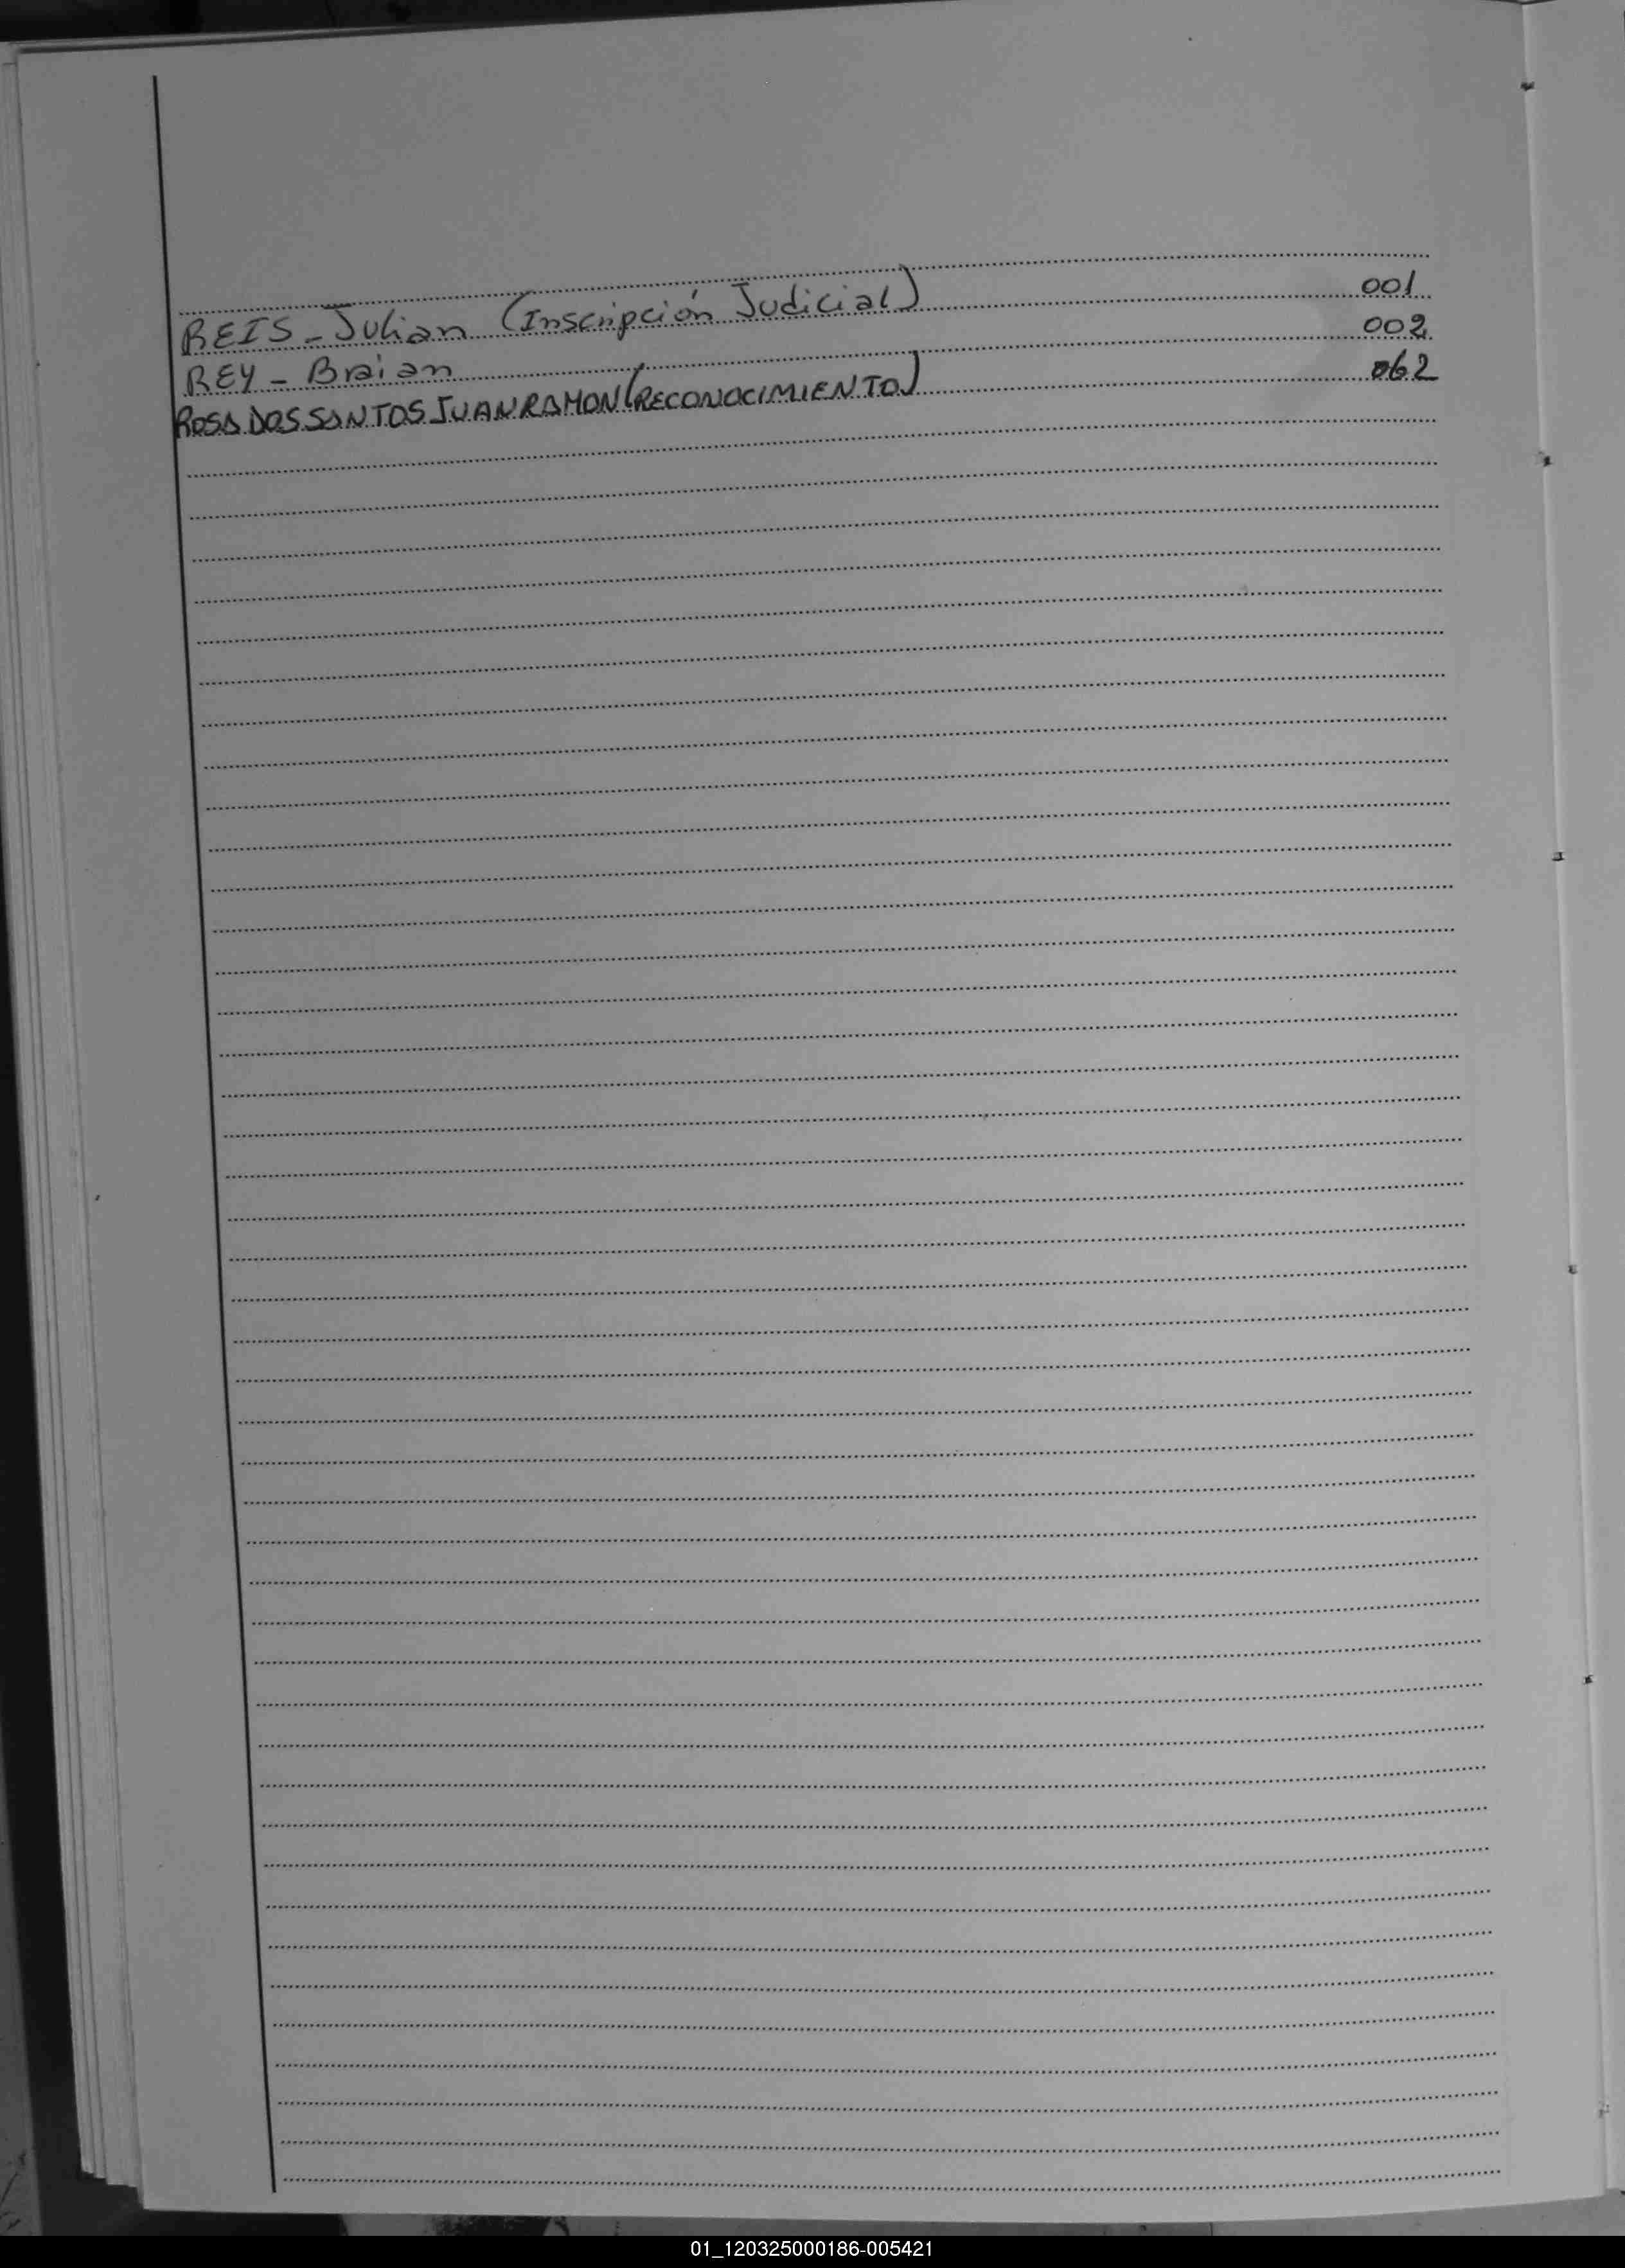 REIS - Julian (Inscripción Judicial) 001
REY - Braian 002
ROSA DOS SANTOS JUAN RAMON (RECONOCIMIENTO) 062
01_120325000186-005421